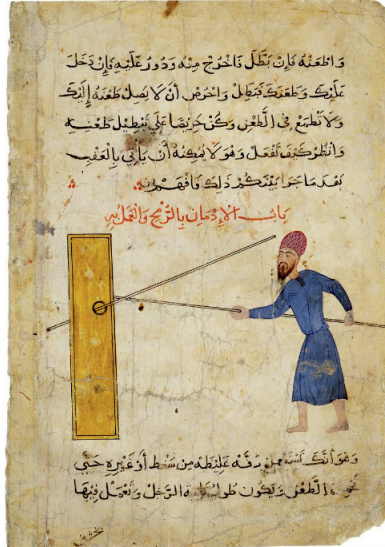 وَاطعَنهُ فَإِن بَطَّلَ فَاخرُج مِنهُ وَدُورُ عَلَيهِ فَإِن دَخَلَ
عَلَيكَ وَطَعَنَكَ فَبَطِّل وَاحرَص أَن لَا يَصِل طَعنُهُ إِلَيكَ
وَلَا تَطمَع فِي الطَّعنِ وَكُن حَرِيصًا عَلَى تَعطِيلِ طَعنِهِ
وَانظُر كَيفَ تَفعَل وَهُوَ لَا يُمكِنُهُ أَن يَأتِي بِالعَقِبِ
بَعدَ مَا جَرَا بَينَكُم ذَلِكَ فَافهَم
بَابُ الإِدمَانِ بِالرُّمحِ وَالعَمَلِ بِهِ
وَهوَ أَنَّكَ تَستَعمِل دَفَّه غَلِيظَه مِن سَنط أَو غَيرِهِ حَتَّى
الطَّعن وَيَكُون طُول الرَّجُلِ وَتَعمَل فِيهَا